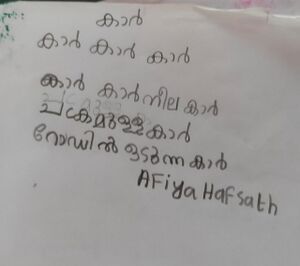 കാർ
കാർ കാർ കാർ
കാർ കാർ നീല കാർ
ചക്രമുള്ള കാർ
റോഡിൽ ഓടുന്ന കാർ
AFiya Hafsath